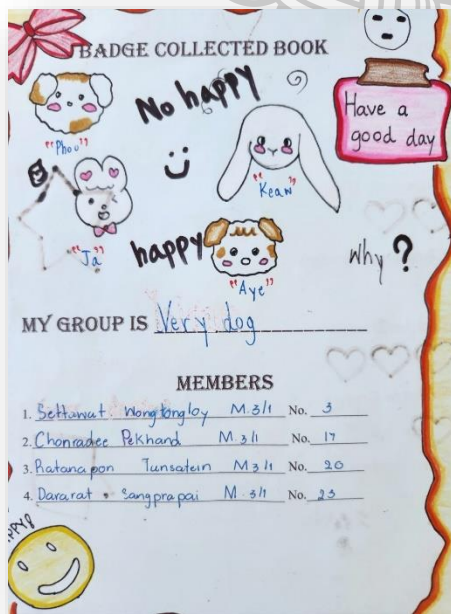 BADGE COLLECTED BOOK
No happy
"Phou"
Have a
good day
"Kean"
"Ja"
happy
"Aye"
Why ?
MY GROUP IS Very dog
MEMBERS
1. Settawat Wongtongloy M.3/1 No. 3
2. Chonradee Pekhand M.3/1 No. 17
3. Ratanapon Tunsatein M 3/1 No. 20
4. Dararat Sangprapai M.3/1 No. 23